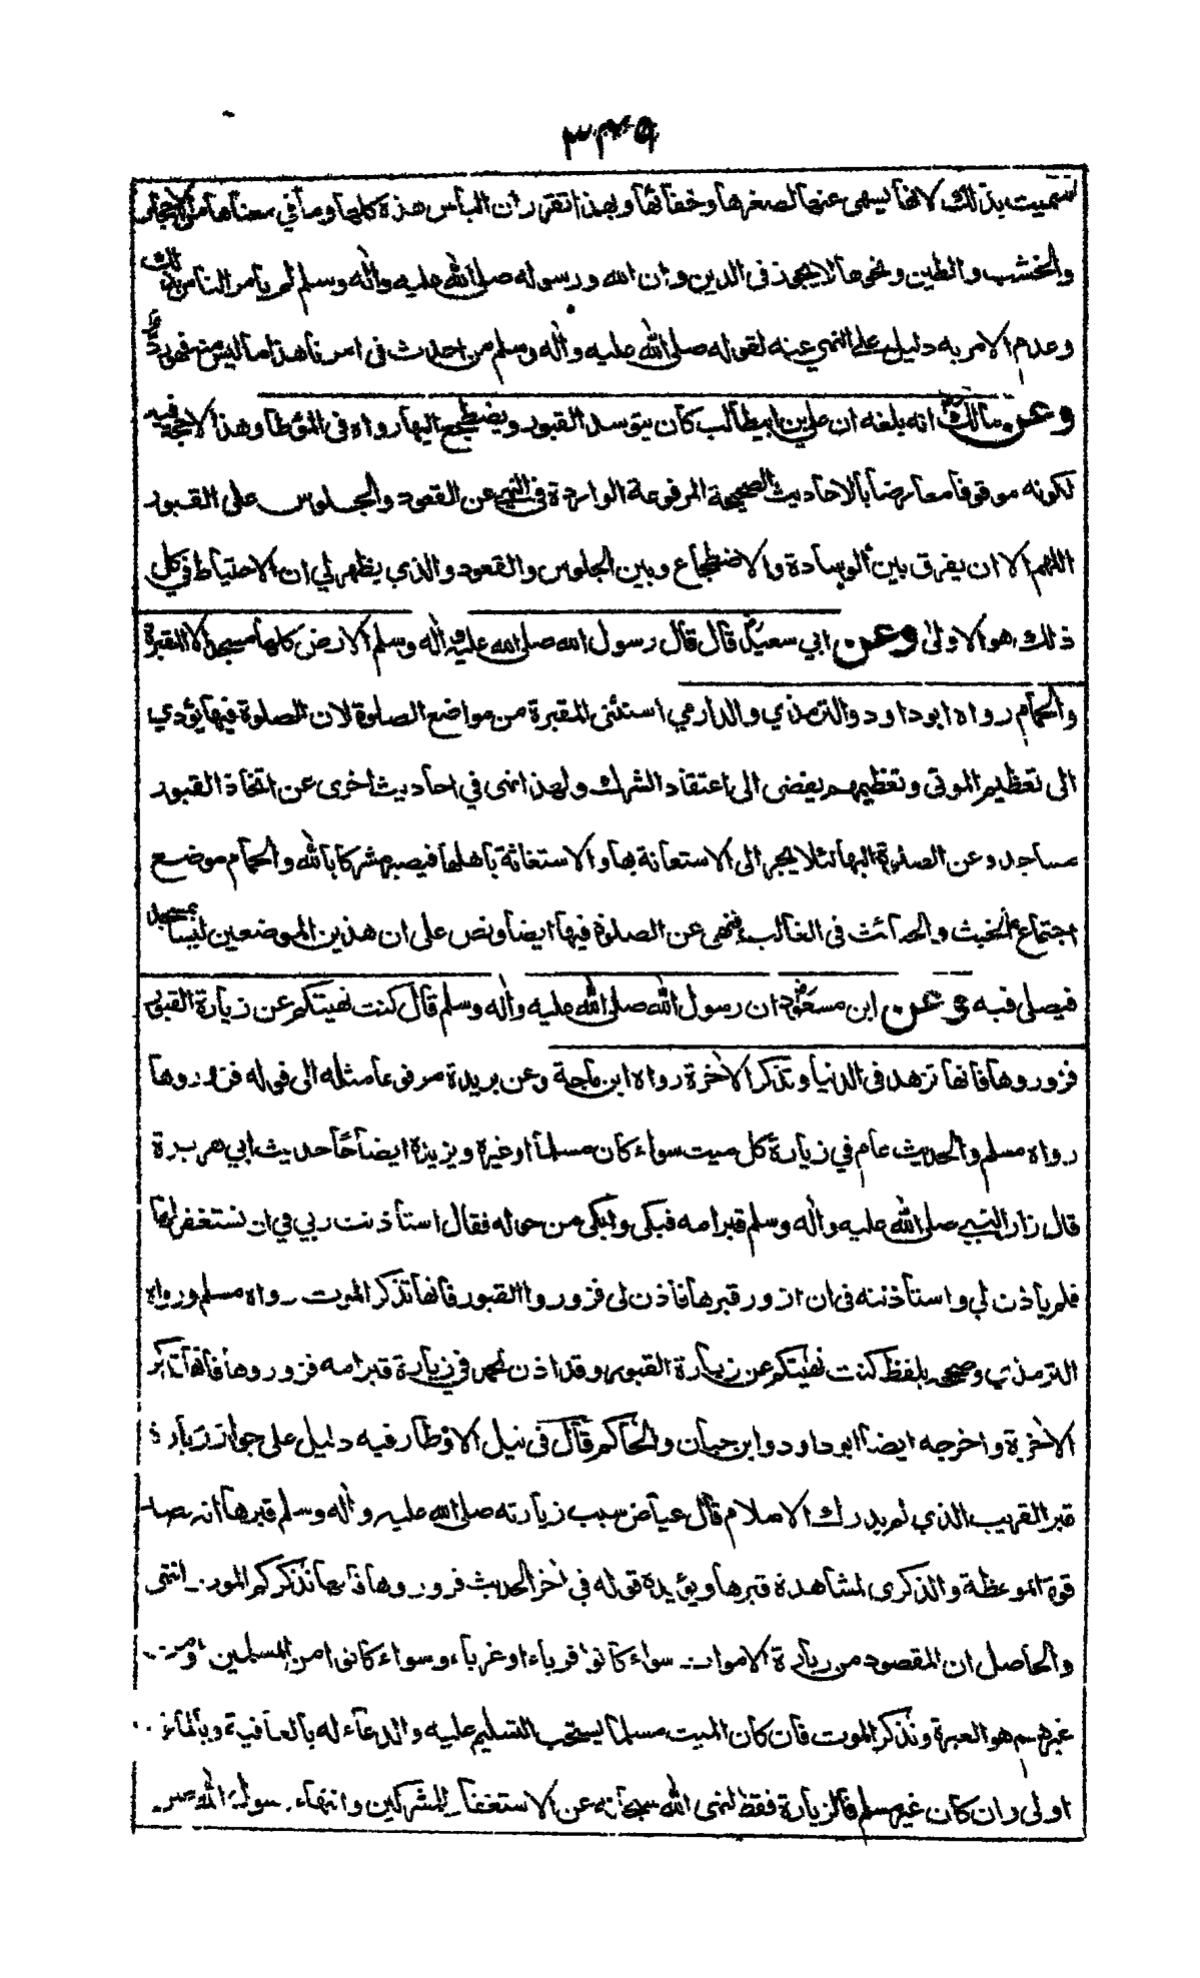 ٣٣٩
تسميت بذلك لانها ينهى عنها لصغرها وخفائها وبهذا تقرر ان الباس هذه كلها وما في معناها من الاحجار
والخشب والطين ونحوها لا يجوز في الدين وان الله ورسوله صلى الله عليه واله وسلم لم يأمر الناس بذلك
وعدم الامر به دليل على النهي عنه لقوله صلى الله عليه واله وسلم من احدث في امرنا هذا ما ليس منه فهو رد
وعن مالك انه بلغه ان علي بن ابيطالب كان يتوسد القبور ويضطجع اليها رواه في المؤطا وهذا لا حجة فيه
لكونه موقوفا معارضا بالاحاديث الصحيحة المرفوعة الواردة في النهي عن القعود والجلوس على القبور
اللهم الا ان يفرق بين الوسادة والاضطجاع وبين الجلوس والقعود والذي يظهر لي ان الاحتياط في كل
ذلك هو الاولى وعن ابي سعيد قال قال رسول الله صلى الله عليه واله وسلم الارض كلها مسجد الا المقبرة
والحمام رواه ابوداود والترمذي والدارمي استثنى المقبرة من مواضع الصلوة لان الصلوة فيها يؤدي
الى تعظيم الموتى وتعظيمهم يفضى الى اعتقاد الشرك ولهذا نهى في احاديث اخرى عن اتخاذ القبور
مساجد وعن الصلوة اليها لئلا يجر الى الاستعانة بها والاستغاثة باهلها فيصير مشركا بالله والحمام موضع
اجتماع الخبث والحدائث في الغالب فنهى عن الصلوة فيها ايضا ونص على ان هذين الموضعين ليسا بمسجد
فيصلى فيه وعن ابن مسعود ان رسول الله صلى الله عليه واله وسلم قال كنت نهيتكم عن زيارة القبور
فزوروها فانها تزهد في الدنيا وتذكر الاخرة رواه ابن ماجة وعن بريدة مرفوعا مثله الى قوله فزوروها
رواه مسلم والحديث عام في زيارة كل ميت سواء كان مسلما او غيره ويزيده ايضاحا حديث ابي هريرة
قال زار النبي صلى الله عليه واله وسلم قبر امه فبكى وابكى من حوله فقال استأذنت ربي في ان نستغفر لها
فلم يأذن لي واستأذنته في ان ازور قبرها فاذن لى فزوروا القبور فانها تذكر الموت رواه مسلم ورواه
الترمذي وصححه بلفظ كنت نهيتكم عن زيارة القبور وقد اذن لمحمد في زيارة قبر امه فزوروها فانها تذكر
الاخرة واخرجه ايضا ابوداود وابن حبان والحاكم قال في نيل الاوطار فيه دليل على جواز زيارة
قبر القريب الذي لم يدرك الاسلام قال عياض سبب زيارته صلى الله عليه واله وسلم قبرها انه قصد
قوة الموعظة والذكرى لمشاهدة قبرها ويؤيده قوله في اخر الحديث فزوروها فانها تذكركم الموت انتهى
والحاصل ان المقصود من زيارة الاموات سواء كانوا قرباء او غرباء وسواء كانوا من المسلمين او من
غيرهم هو العبرة وتذكر الموت فان كان الميت مسلما يستحب التسليم عليه والدعاء له بالعافية
اولى وان كان غير مسلم فالزيارة فقط لنهى الله سبحانه عن الاستغفار للمشركين وانتهاء رسول الله